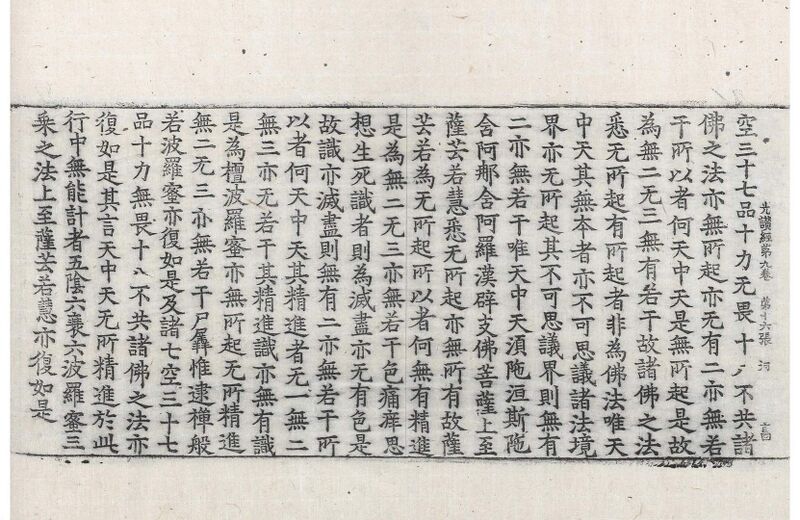 空三十七品十力无畏十八不共諸
佛之法亦無所起亦无有二亦無若
干所以者何天中天是無所起是故
為無二无三無有若干故諸佛之法
悉无所起有所起者非為佛法唯天
中天其無本者亦不可思議諸法境
界亦无所起其不可思議界則無有
二亦無若干唯天中天須陁洹斯陁
含阿那含阿羅漢辟支佛菩薩上至
薩芸若慧悉无所起亦無所有故薩
芸若為无所起所以者何無有精進
是為無二无三亦無若干色痛痒思
想生死識者則為滅盡亦无有色是
故識亦滅盡則無有二亦無若干所
以者何天中天其精進者无一無二
無三亦无若干其精進識亦無有識
是為檀波羅蜜亦無所起无所精進
無二无三亦無若干尸羼惟逮禪般
若波羅蜜亦復如是及諸七空三十七
品十力無畏十八不共諸佛之法亦
復如是其言天中天无所精進於此
行中無能計者五陰六衰六波羅蜜三
乘之法上至薩芸若慧亦復如是
光讚經第九卷 第十六張 河